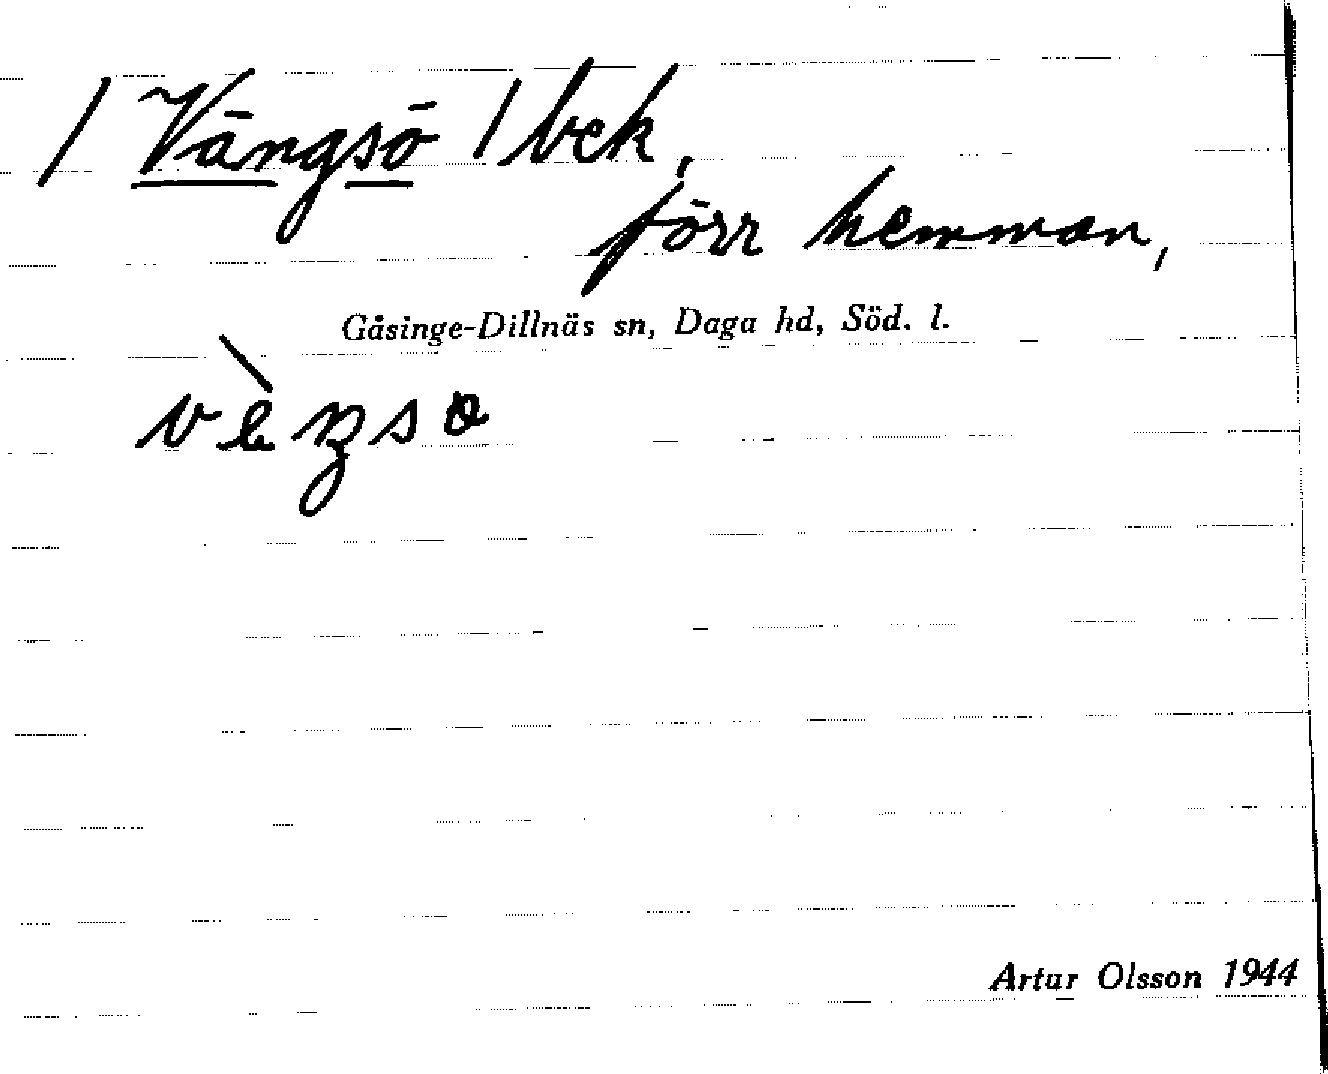 / Vängsö / bek,
förr hemman,
Gåsinge-Dillnäs sn, Daga hd, Söd. l.
Artur Olsson 1944